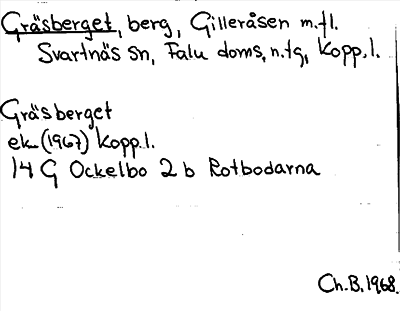 Gräsberget, berg, Gilleråsen m.fl.
Svartnäs sn, Falu doms. n. tg, Kopp. l.
Gräsberget
ek. (1967) Kopp.l.
14 G Ockelbo 2 b Rotbodarna
Ch.B. 1968.